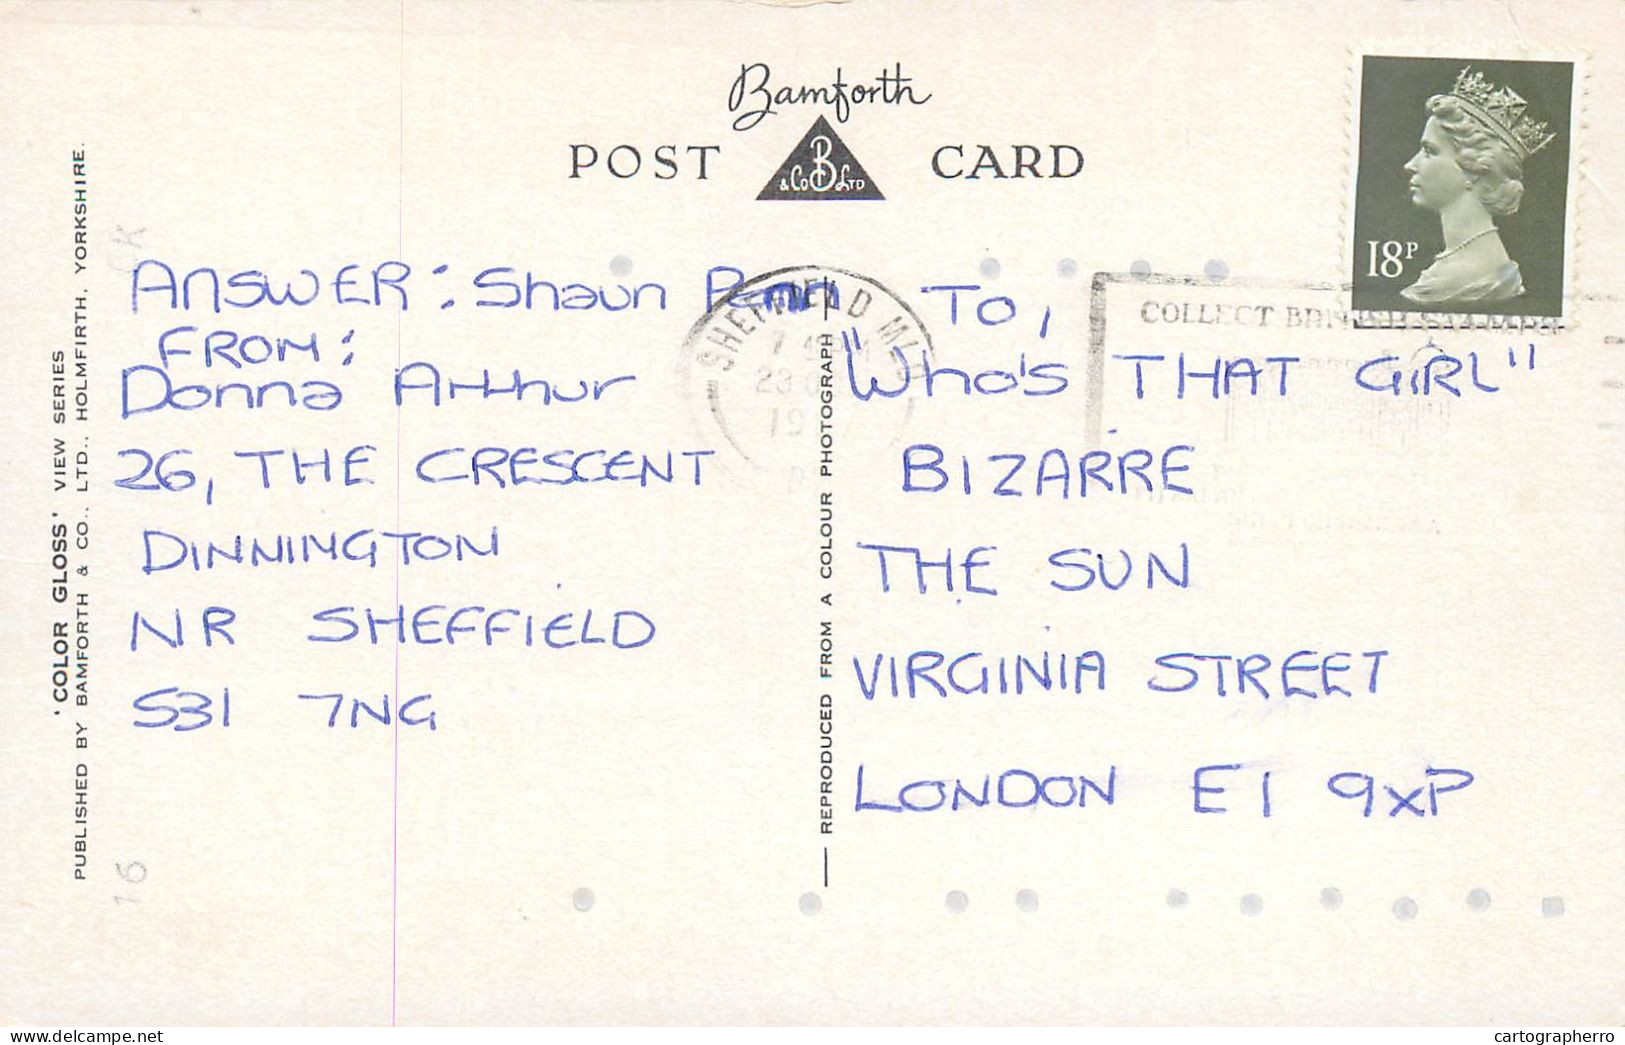 Bamforth
POST CARD
& Co B Ltd
18P
'COLOR GLOSS' VIEW SERIES
PUBLISHED BY BAMFORTH & CO., LTD., HOLMFIRTH, YORKSHIRE.
ANSWER: Shaun
FROM:
Donna Arthur
26, THE CRESCENT
DINNINGTON
NR SHEFFIELD
S31 7NG
REPRODUCED FROM A COLOUR PHOTOGRAPH
SHEFFIELD
23
COLLECT BRITISH STAMPS
To,
"Who's THAT GIRL"
BIZARRE
THE SUN
VIRGINIA STREET
LONDON E1 9XP
16
cartographerro